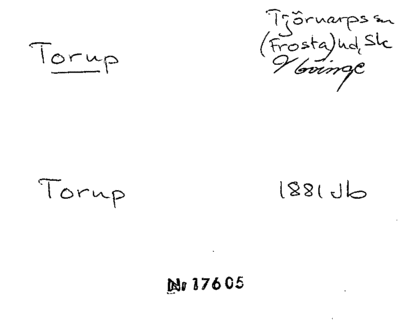 Torup
Tjörnarps sn
(Frosta) hd, Sk
V Göinge
Torup
1881 Jb
Nr 17605